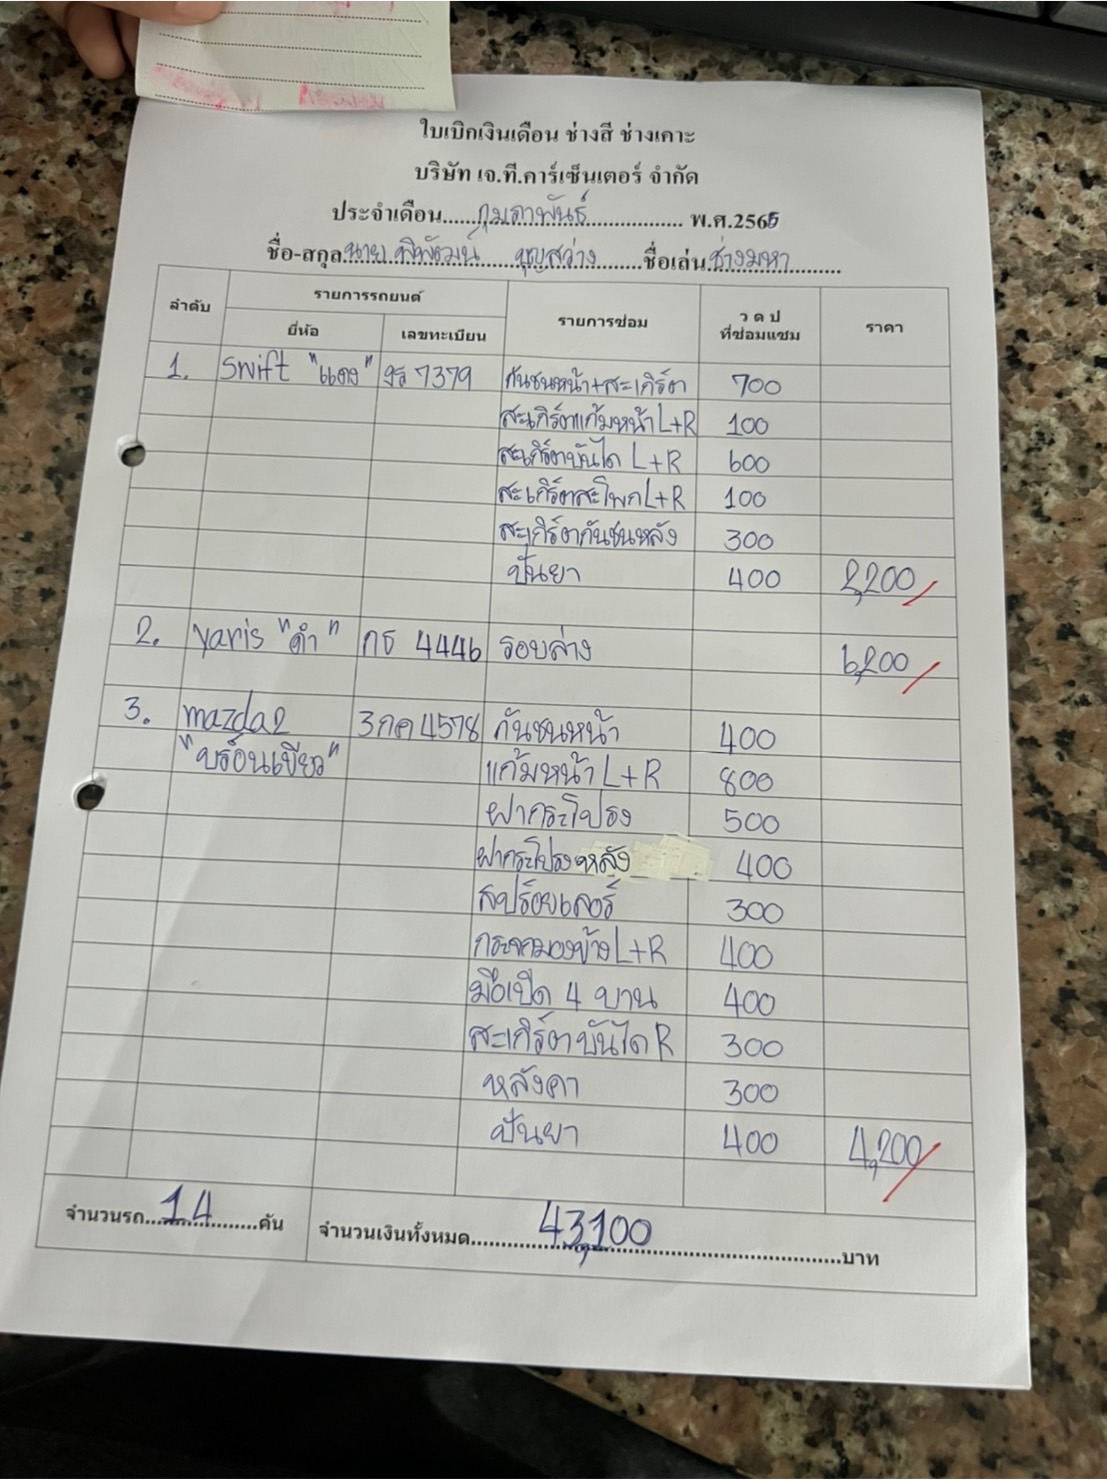 ใบเบิกเงินเดือน ช่างสี ช่างเคาะ
บริษัท เจ.ที.คาร์เซ็นเตอร์ จำกัด
ประจำเดือน......กุมภาพันธ์........................ พ.ศ.2565
ชื่อ-สกุล นาย พิพัฒน์ บุญสว่าง ชื่อเล่น ช่างมหา
ลำดับ รายการรถยนต์ รายการซ่อม ว ด ป ที่ซ่อมแซม ราคา
ยี่ห้อ เลขทะเบียน
1. swift "แดง" 7379 กันชนหน้า+สะเกิร์ต 700
สะเกิร์ตแก้มหน้า L+R 100
สะเกิร์ตบันได L+R 600
สะเกิร์ตสะโพก L+R 100
สะเกิร์ตกันชนหลัง 300
ปั่นยา 400 2,200
2. yaris "ดำ" กธ 4446 รอบล่าง 6,200
3. mazda2 3กค 4578 กันชนหน้า 400
"บรอนเขียว" แก้มหน้า L+R 800
ฝากระโปรง 500
ฝากระโปรงหลัง 400
สปร้อยเลอร์ 300
กระจกมองข้าง L+R 400
มือเปิด 4 บาน 400
สะเกิร์ตบันได R 300
หลังคา 300
ปั่นยา 400 4,200
จำนวนรถ....14........คัน จำนวนเงินทั้งหมด..........43,100..............................บาท